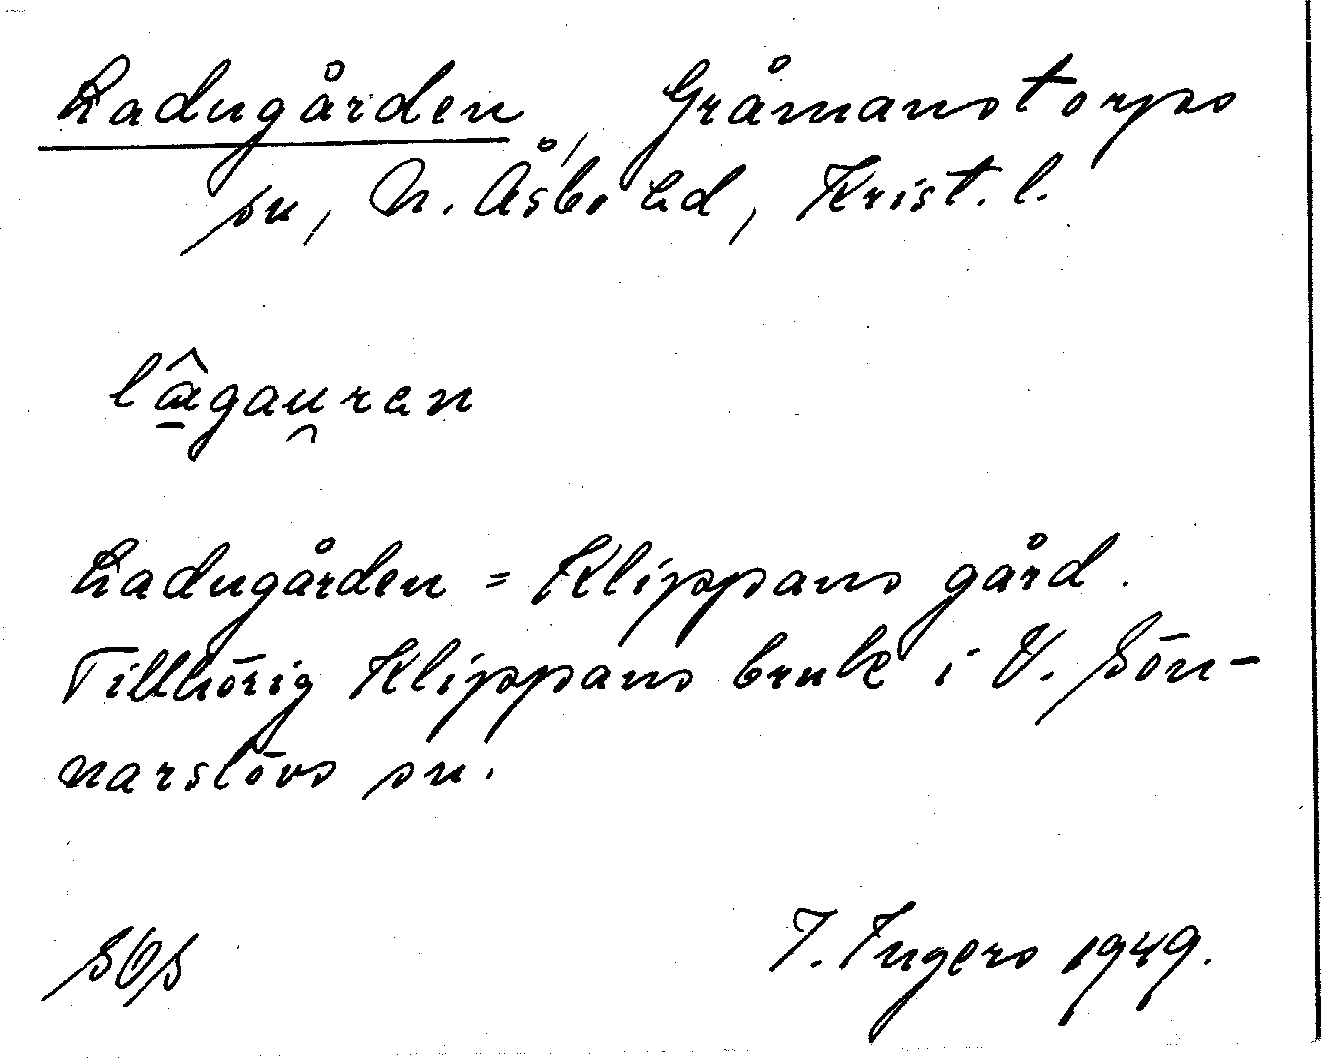 Ladugården, Gråmanstorps
sn, N. Åsbo hd, Krist. l.
lâ̱gau̯ren
Ladugården = Klippans gård.
Tillhörig Klippans bruk i V. Sön-
narslövs sn.
SOS
I. Ingers 1949.